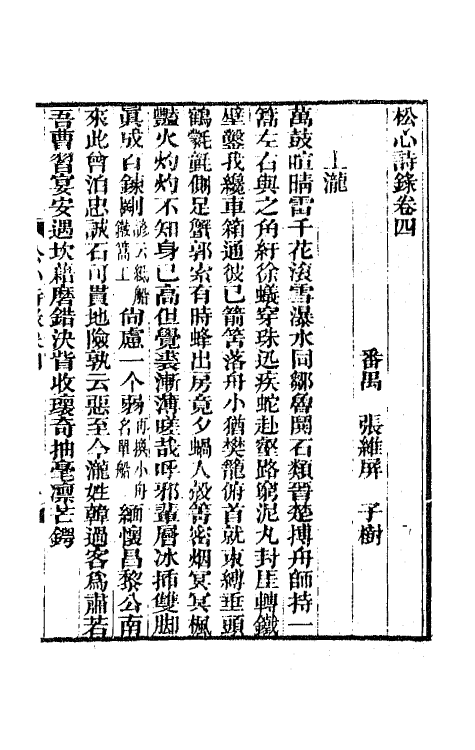 松心詩錄卷四
番禺　張維屏　子樹
上瀧
萬鼓喧晴雷千花滾雪瀑水同鄒魯鬨石類晉楚搏舟師持一
篙左右與之角紆徐蟻穿珠迅疾蛇赴壑路窮泥丸封厓轉鐵
壁鑿我纜車箱通彼已箭筈落舟小猶樊籠俯首就束縛垂頭
鶴毰毸側足蟹郭索有時蜂出房竟夕蝸入殼篛密烟冥冥楓
豔火灼灼不知身已高但覺裘漸薄嗟哉呼邪輩層冰插雙脚
眞成百鍊剛諺云紙船鐵篙上尙慮一个弱再換小舟名單船緬懷昌黎公南
來此曾泊忠誠石可貫地險孰云惡至今瀧姓韓過客爲肅若
吾曹習宴安遇坎藉磨錯決眥收瓌奇抽毫凜芒鍔